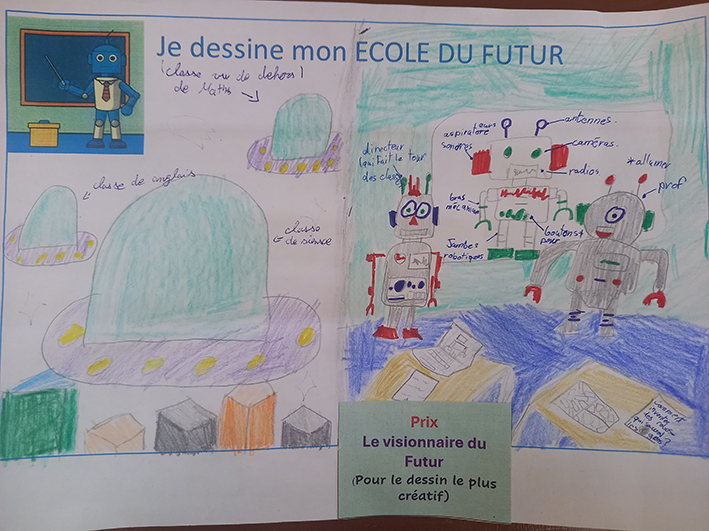 Je dessine mon ECOLE DU FUTUR
(classe vue de dehors)
de Maths
classe de anglais
classe
de science
directeur
(qui fait le tour
des classes)
aspirateur
sonores
antennes.
caméras.
radios
bras
mécanique
boutons
pour
* allumer
Jambes
robotiques
prof
Comment
Prix
Le visionnaire du
Futur
(Pour le dessin le plus
créatif)